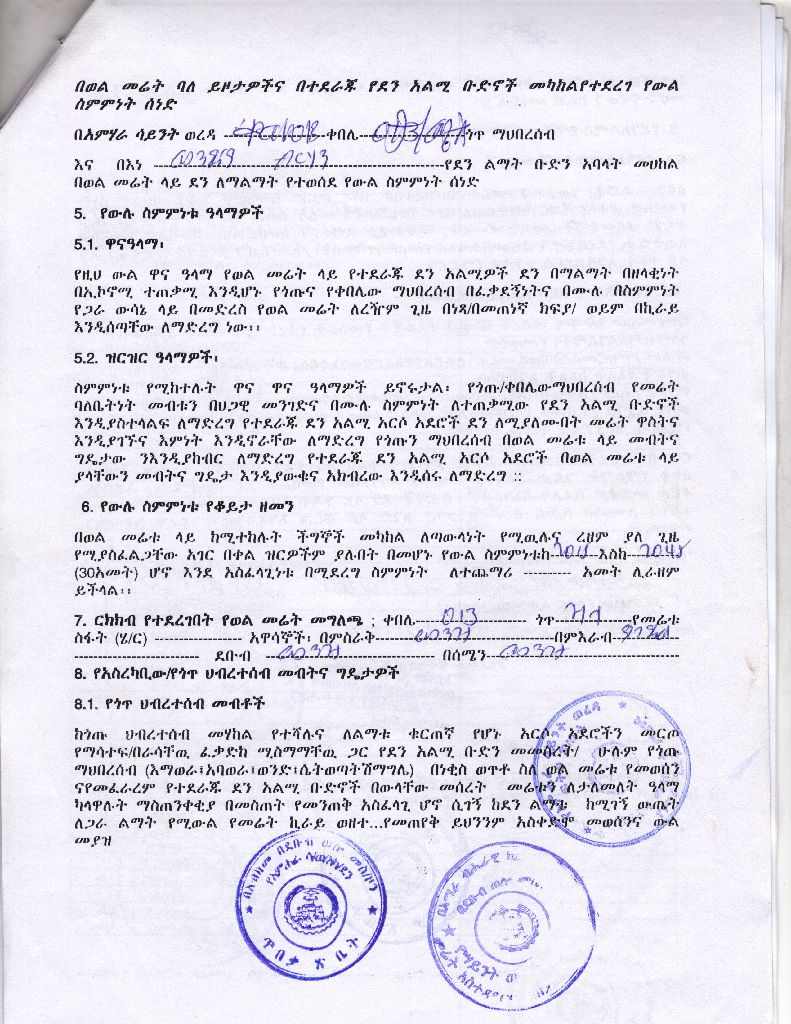 በወል መሬት ባለ ይዞታዎችና በተደራጁ የደን አልሚ ቡድኖች መካከልየተደረገ የውል
ስምምነት ሰነድ
በአምሃራ ሳይንት ወረዳ ቀበሌ ጎጥ ማህበረሰብ
እና በእነ የደን ልማት ቡድን አባላት መሀከል
በወል መሬት ላይ ደን ለማልማት የተወሰደ የውል ስምምነት ሰነድ
5. የውሉ ስምምነቱ ዓላማዎች
5.1. ዋናዓላማ፡
የዚህ ውል ዋና ዓላማ የወል መሬት ላይ የተደራጁ ደን አልሚዎች ደን በማልማት በዘላቂነት
በኢኮኖሚ ተጠቃሚ እንዲሆኑ የጎጡና የቀበሌው ማህበረሰብ በፈቃደኝነትና በሙሉ በስምምነት
የጋራ ውሳኔ ላይ በመድረስ የወል መሬት ለረዥም ጊዜ በነጻ/በመጠነኛ ክፍያ/ ወይም በኪራይ
እንዲሰጣቸው ለማድረግ ነው፡፡
5.2. ዝርዝር ዓላማዎች፡
ስምምነቱ የሚከተሉት ዋና ዋና ዓላማዎች ይኖሩታል፡ የጎጡ/ቀበሌውማህበረሰብ የመሬት
ባለቤትነት መብቱን በህጋዊ መንገድና በሙሉ ስምምነት ለተጠቃሚው የደን አልሚ ቡድኖች
እንዲያስተላልፍ ለማድረግ የተደራጁ ደን አልሚ አርሶ አደሮች ደን ለሚያለሙበት መሬት ዋስትና
እንዲያገኙና እምነት እንዲኖራቸው ለማድረግ የጎጡን ማህበረሰብ በወል መሬቱ ላይ መብትና
ግዴታው ንእንዲያከብር ለማድረግ የተደራጁ ደን አልሚ አርሶ አደሮች በወል መሬቱ ላይ
ያላቸውን መብትና ግዴታ እንዲያውቁና አክብረው እንዲሰሩ ለማድረግ ::
6. የውሉ ስምምነቱ የቆይታ ዘመን
በወል መሬቱ ላይ ከሚተከሉት ችግኞች መካከል ለጣውላነት የሚዉሉና ረዘም ያለ ጊዜ
የሚያስፈልጋቸው አገር በቀል ዝርዎችም ያሉበት በመሆኑ የውል ስምምነቱከ እስከ
(30አመት) ሆኖ እንደ አስፈላጊነቱ በሚደረግ ስምምነት ለተጨማሪ ---------- አመት ሊራዘም
ይችላል፡፡
7. ርክክብ የተደረገበት የወል መሬት መግለጫ ; ቀበሌ 013 ጎጥ የመሬቱ
ስፋት (ሄ/ር) ------------------ አዋሳኞች፡ በምስራቅ ወንዝ በምእራብ
ደቡብ ወንዝ በሰሜን ወንዝ
8. የአስረካቢው/የጎጥ ህብረተሰብ መብትና ግዴታዎች
8.1. የጎጥ ህብረተሰብ መብቶች
ከጎጡ ህብረተሰብ መሃከል የተሻሉና ለልማቱ ቁርጠኛ የሆኑ አርሶ አደሮችን መርጦ
የማሳተፍ/በራሳቸዉ ፈቃድከ ሚስማማቸዉ ጋር የደን አልሚ ቡድን መመስረት/ ሁሉም የጎጡ
ማህበረሰብ (እማወራ፣አባወራ፣ወንድ፣ሴትወጣትሽማግሌ) በነቂስ ወጥቶ ስለ ወል መሬቱ የመወሰን
ናየመፈራረም የተደራጁ ደን አልሚ ቡድኖች በውላቸው መሰረት መሬቱን ለታለመለት ዓላማ
ካላዋሉት ማስጠንቀቂያ በመስጠት የመንጠቅ አስፈላጊ ሆኖ ሲገኝ ከደን ልማቱ ከሚገኝ ውጤት
ለጋራ ልማት የሚውል የመሬት ኪራይ ወዘተ...የመጠየቅ ይህንንም አስቀድሞ መወሰንና ውል
መያዝ